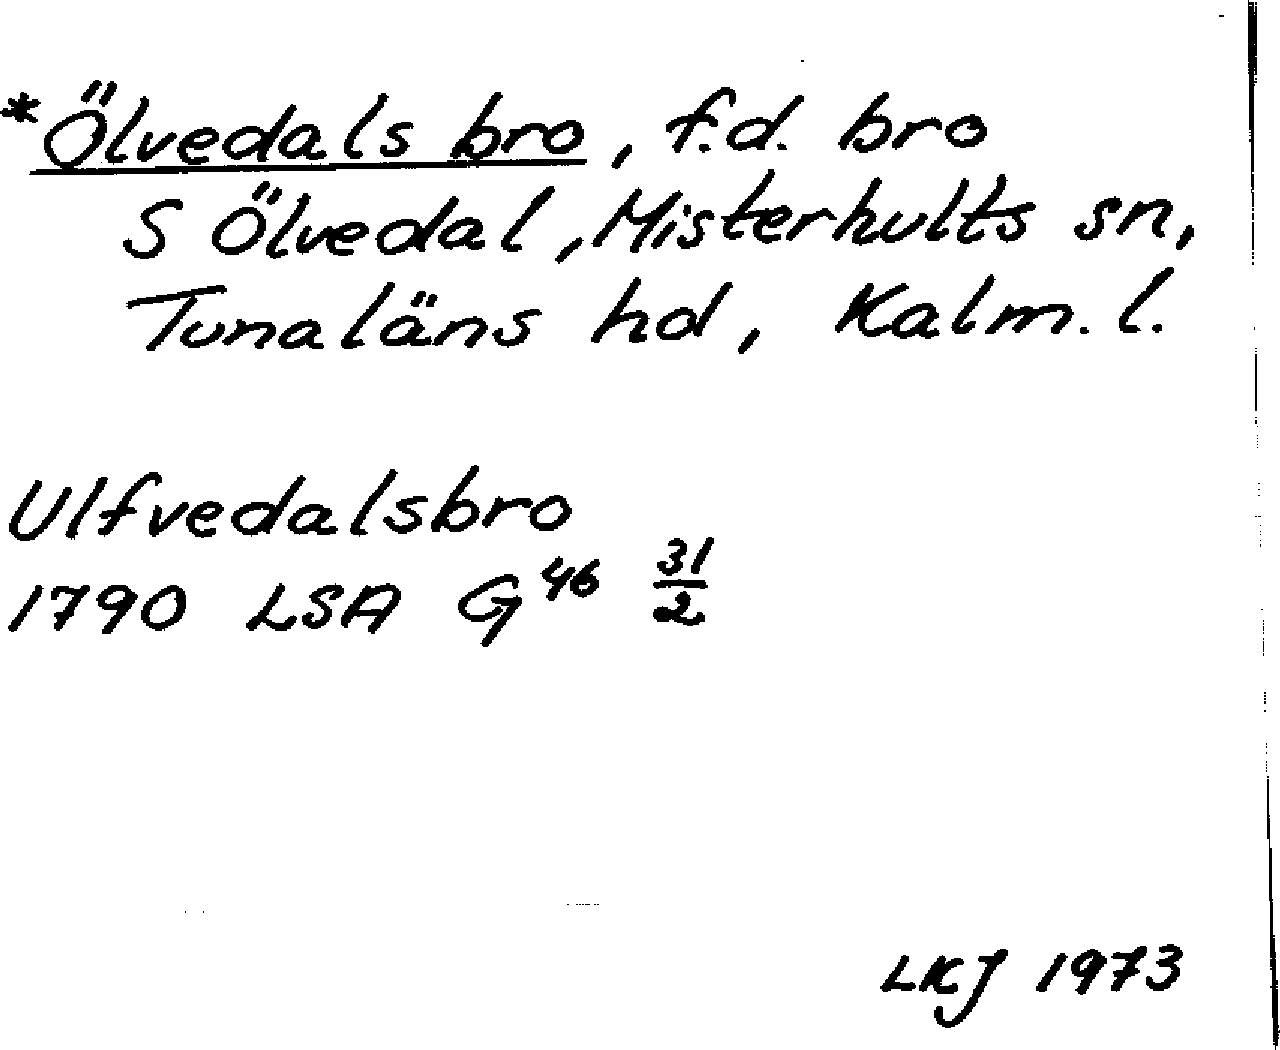 *Ölvedals bro, f.d. bro
S Ölvedal, Misterhults sn,
Tunaläns hd, Kalm. l.
Ulfvedalsbro
1790 LSA G46 31/2
LKJ 1973